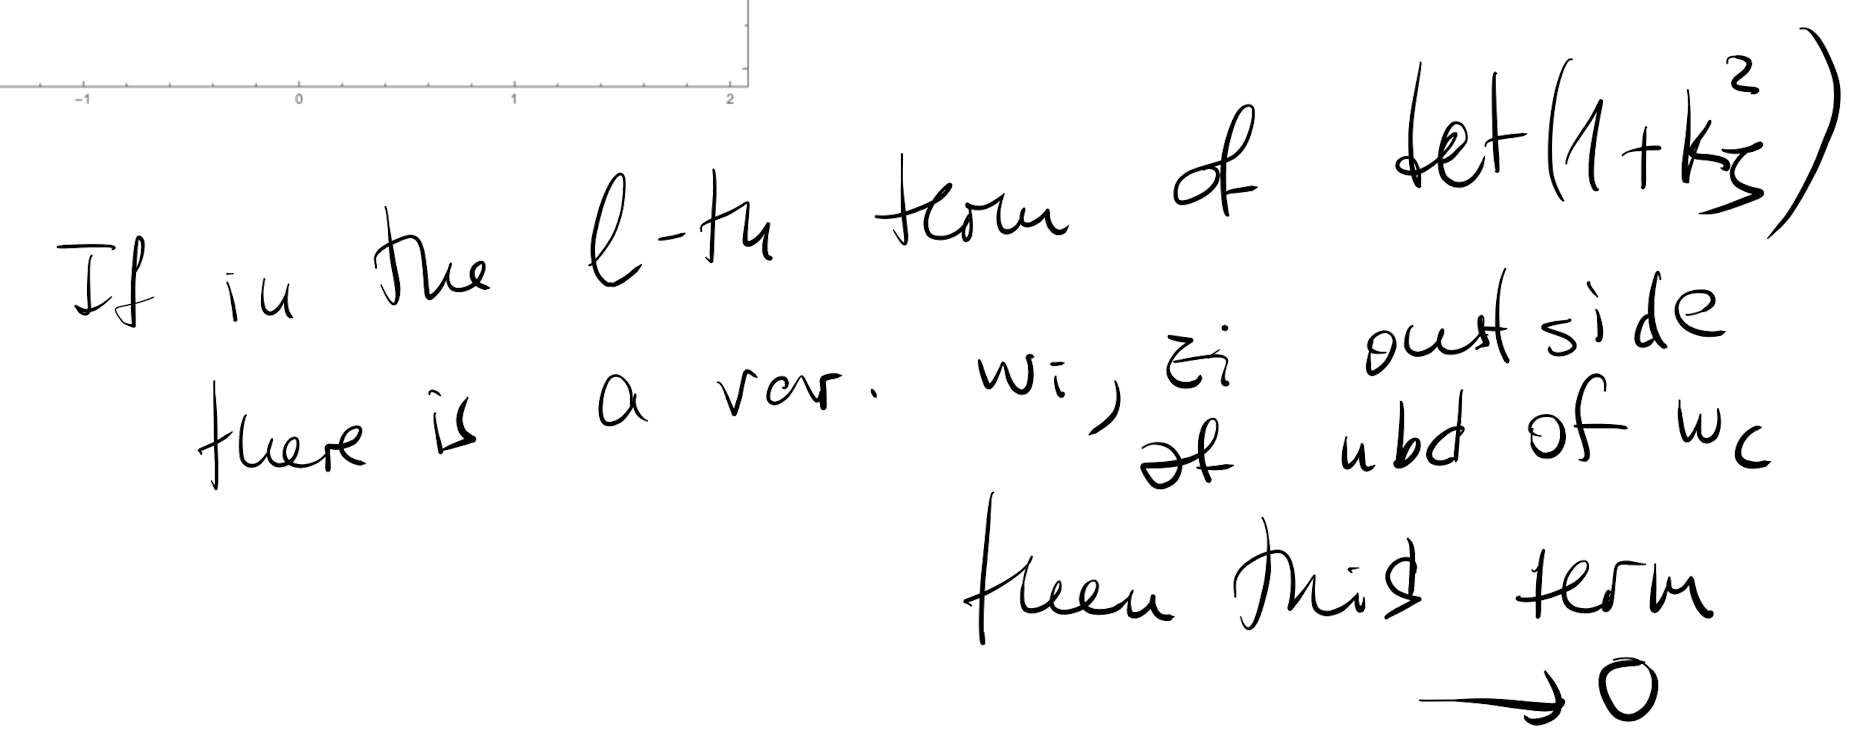 -1 0 1 2
If in the l-th term of det(1+K_ζ^2)
there is a var. w_i, z_i outside
of nbd of w_c
then this term
→ 0